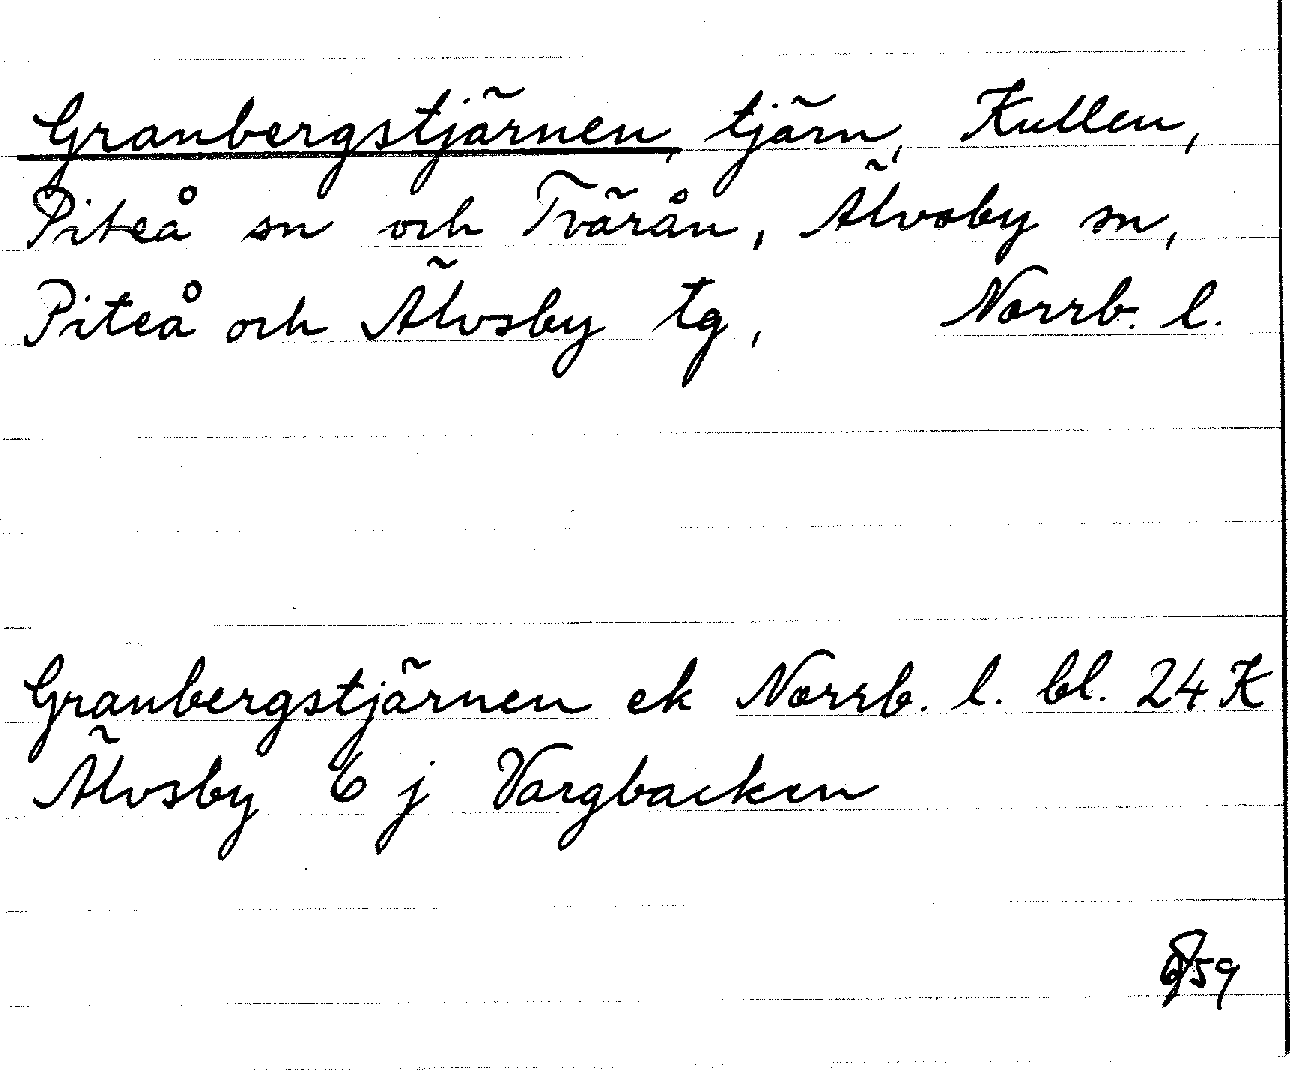 Granbergstjärnen, tjärn, Kullen,
Piteå sn och Tvärån, Älvsby sn,
Piteå och Älvsby tg, Norrb. l.
Granbergstjärnen ek Norrb. l. bl. 24 K
Älvsby 6 j Vargbacken